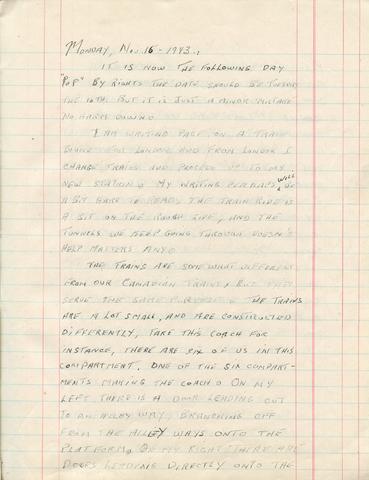 MONDAY, NOV. 16 - 1943.
IT IS NOW THE FOLLOWING DAY
"POP" BY RIGHTS THE DATE SHOULD BE TUESDAY
THE 16TH. BUT IT IS JUST A MINOR MISTAKE
NO HARM
I AM WRITING PAGE ON A TRAIN
BOUND FOR LONDON AND FROM LONDON I
CHANGE TRAINS AND PROCEED UP TO MY
NEW STATION. MY WRITING PERHAPS WILL BE
A BIT HARD TO READ, THE TRAIN RIDE IS
A BIT ON THE ROUGH SIDE, AND THE
TUNNELS WE KEEP GOING THROUGH DOESN'T
HELP MATTERS ANY.
THE TRAINS ARE SOMEWHAT DIFFERENT
FROM OUR CANADIAN TRAINS, BUT THEY
SERVE THE SAME PURPOSE. THE TRAINS
ARE A LOT SMALL, AND ARE CONSTRUCTED
DIFFERENTLY, TAKE THIS COACH FOR
INSTANCE, THERE ARE SIX OF US IN THIS
COMPARTMENT. ONE OF THE SIX COMPART-
MENTS MAKING THE COACH. ON MY
LEFT THERE IS A DOOR LEADING OUT
TO AN ALLEY WAY, BRANCHING OFF
FROM THE ALLEY WAYS ONTO THE
PLATFORM, ON MY RIGHT THERE ARE
DOORS LEADING DIRECTLY ONTO THE